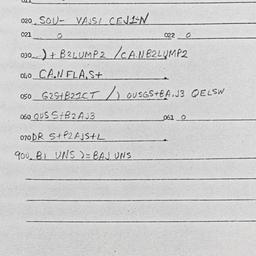 020 SOU- VAJSI CEJI-N
021 0 022 0
030 ) + B2LUMP2 /CA.NB2LUMP2
040 CA.NFLA,S+
050 G2S+B2ICT /) OUSGS+BA.J3 QELSW
060 QUSS+B2AJ3 061 0
070 DR S+P2AJS+L
900. BI UNS )=BAJ UNS